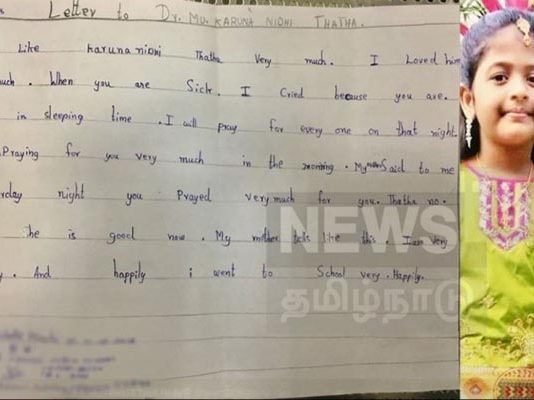 Letter to Dr. Mu. KARUNA NIDHI THATHA.
Like Karuna NiDhi Thatha very much. I Loved him
much. When you are Sick. I Cried because you are.
in sleeping time. I will pray for every one on that night.
Praying for you very much in the morning. My Said to me
rday night you Prayed very much for you. Thatha no.
he is good now. My mother tells like this. I am very
y. And happily i went to School very. Happily.
NEWS
தமிழ்நாடு